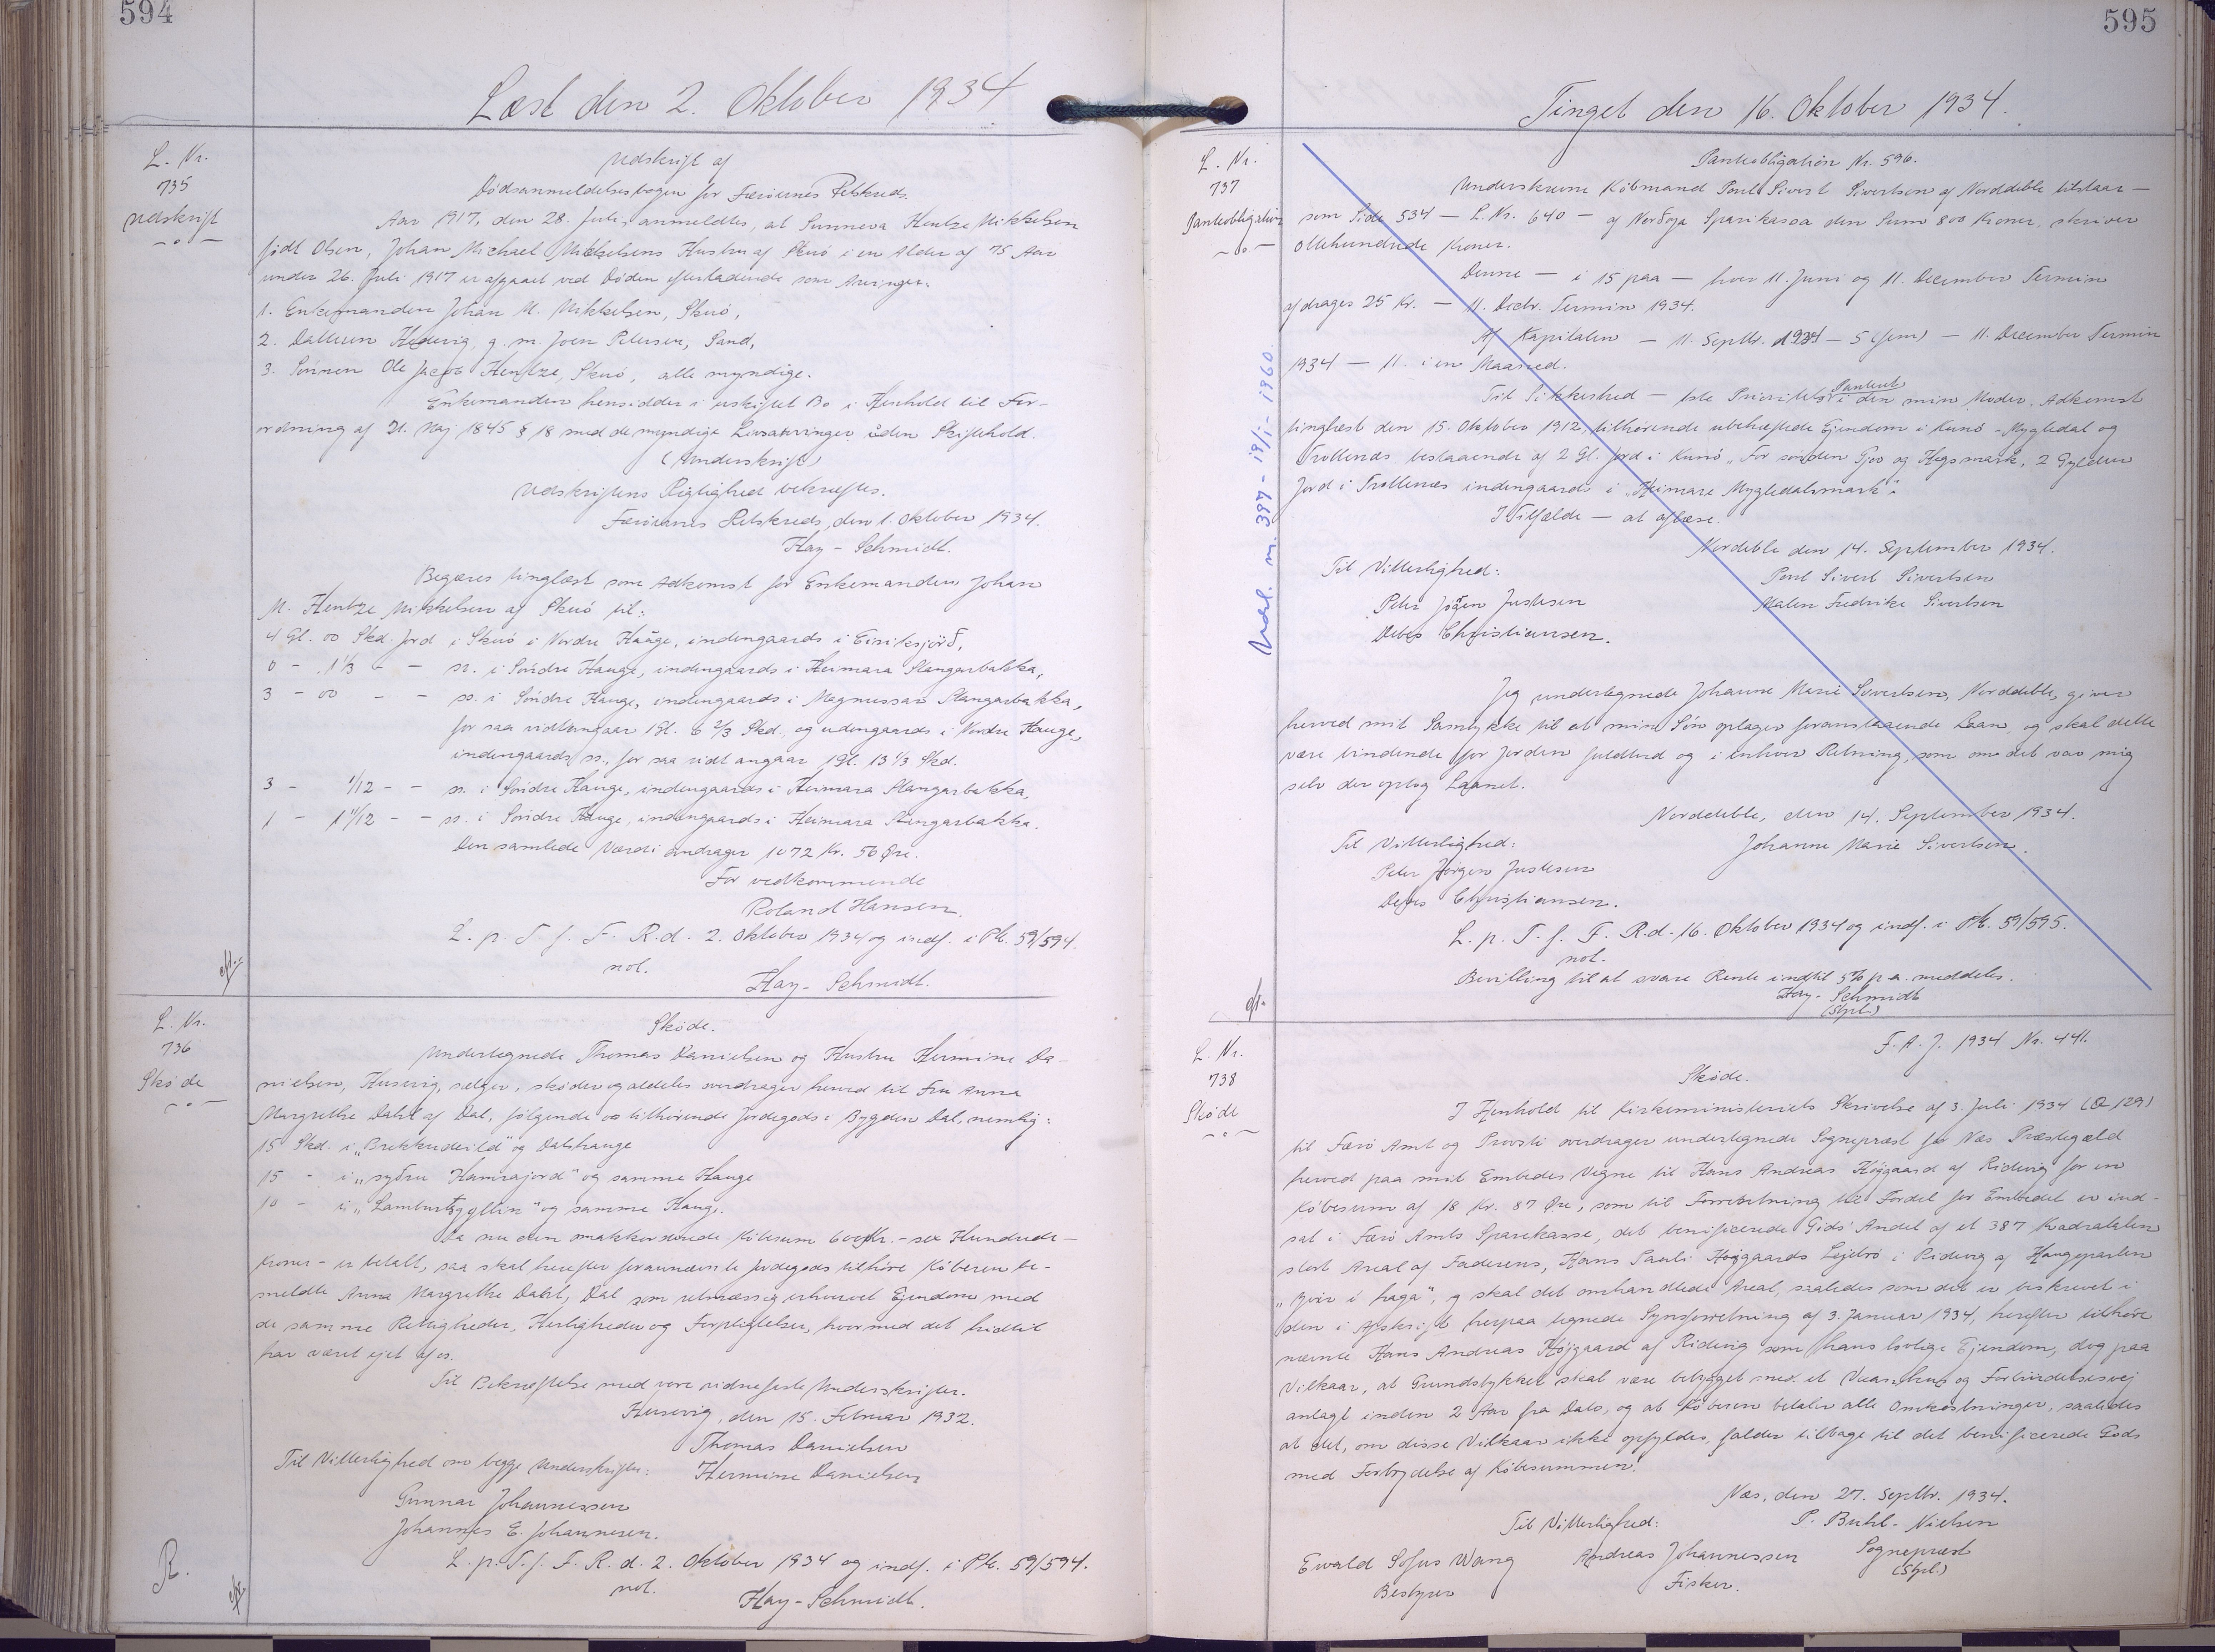 594
Læst den 2. Oktober 1934
L. Nr.
735
Udskrift
Udskrift af
Dødsanmeldelsesbogen for Færøernes Retskreds.
Aar 1917, den 28. Juli, anmeldtes, at Sunneva Hentze Mikkelsen
født Olsen, Johan Michael Mikkelsens Hustru af Skuó i en Alder af 75 Aar
under 26. Juli 1917 er afgaaet ved Døden efterladende som Arvinger:
1. Enkemanden Johan M. Mikkelsen, Skuó,
2. Datteren Hedevig, g. m. Joen Petersen, Sand,
3. Sönnen Ole Jacob Hentze, Skuó, alle myndige.
Enkemanden hensidder i uskiftet Bo i Henhold til For-
ordning af 21. Maj 1845 § 18 med de myndige Livsarvinger uden Skiftehold.
(Underskrift)
Udskriftens Rigtighed bekræftes.
Færöernes Retskreds, den 1. Oktober 1934.
Hay-Schmidt.
Begæres tinglæst som Adkomst for Enkemanden Johan
M. Hentze Mikkelsen af Skuó til:
4 Gl. 00 Skd. Jord i Skuó i Nordre Hauge, indengaards i Eiriksjörð,
0 - 1 1/3 - - ss. i Söndre Hauge, indengaards i Heimara Slangarbakka,
3 - 00 - - ss. i Söndre Hauge, indengaards i Magnussar Slangarbakka,
for saa vidt angaar 1 Gl. 6 2/3 Skd., og udengaards i Nordre Hauge,
indengaards ss., for saa vidt angaar 1 Gl. 13 1/3 Skd.
3 - 1/12 - - ss. i Söndre Hauge, indengaards i Heimara Slangarbakka,
1 - 1 11/12 - - ss. i Söndre Hauge, indengaards i Heimara Slangarbakka.
Den samlede Værdi andrager 1072 Kr. 56 Øre.
For vedkommende
Roland Hansen.
L. p. T. f. F. R. d. 2. Oktober 1934 og indf. i Pb. 59/594.
not.
Hay-Schmidt.
L. Nr.
736
Sköde
Sköde.
Undertegnede Thomas Danielsen og Hustru Hermine Da-
nielsen, Husevig, sælger, sköder og aldeles overdrager herved til Fru Anna
Margrethe Dahl af Dal, følgende os tilhørende Jordegods i Bygden Dal, nemlig:
15 Skd. i "Brekkudeild" og Dalshauge
15 - i "syðru Hamrajord" og samme Hauge
10 - i "Lambatsgyllin" og samme Hauge.
Da nu den omakkorderede Købesum 600 Kr. - sex Hundrede
Kroner - er betalt, saa skal herefter forannævnte Jordegods tilhöre Køberen be-
meldte Anna Margrethe Dahl, Dal som retmæssig erhvervet Ejendom med
de samme Rettigheder, Herligheder og Forpligtelser, hvormed det hidtil
har været ejet af os.
Til Bekræftelse med vore vidnefaste Underskrifter.
Husevig, den 15. Februar 1932.
Thomas Danielsen
Til Vitterlighed om begge Underskrifter: Hermine Danielsen
Gunnar Johannessen
Johannes E. Johannesen.
L. p. T. f. F. R. d. 2. Oktober 1934 og indf. i Pb. 59/594.
not.
Hay-Schmidt.
R.
595
Tinget den 16. Oktober 1934.
L. Nr.
737
Panteobligation
Panteobligation Nr. 596.
Underskrevne Købmand Poul Sivert Sivertsen af Norddeble tilstaar —
som Side 534 — L. Nr. 640 — af Norðoya Sparikassa den Sum 800 Kroner, skriver
Ottehundrede Kroner.
Denne — i 15 paa — hver 11. Juni og 11. December Termin
afdrages 25 Kr. — 11. Decbr. Termin 1934.
Af Kapitalen — 11. Septbr. 1934 — 5 (fem) — 11. December Termin
1934 — 11. i en Maaned.
Til Sikkerhed — 1ste Prioritets Panteret i den min Moder, Adkomst
tinglæst den 15. Oktober 1912, tilhørende ubehæftede Ejendom i Kunó - Mygledal og
Trøllenæs bestaaende af 2 Gl. Jord i Kunó "For sunden Gjov og Hegsmark, 2 Gylden
Jord i Trøllenæs indengaards i "Heimare Mygledalsmark".
I Tilfælde — at aflæse.
Norddeble den 14. September 1934.
Til Vitterlighed: Poul Sivert Sivertsen
Peter Jögen Justesen Malen Fredrike Sivertsen
Debes Christiansen.
Jeg undertegnede Johanne Marie Sivertsen, Norddeble, giver
herved mit Samtykke til at min Sön optager foranstaaende Laan, og skal dette
være bindende for Jorden fuldtud og i enhver Retning, som om det var mig
selv der optog Laanet.
Norddeble, den 14. September 1934.
Til Vitterlighed: Johanne Marie Sivertsen.
Peter Jörgen Justesen
Debes Christiansen.
L. p. T. f. F. R. d. 16. Oktober 1934 og indf. i Pb. 59/595.
not.
Bevilling til at svare Rente indtil 5% p. a. meddeles.
Hay-Schmidt
(Stpl.)
397 - 19/1 - 1960.
L. Nr.
738
Sköde
F. A. J. 1934 Nr. 441.
Sköde.
I Henhold til Kirkeministeriets Skrivelse af 3. Juli 1934 (Q 129)
til Færö Amt og Provsti overdrager undertegnede Sognepræst for Næs Præstegæld
herved paa mit Embedes Vegne til Hans Andreas Höjgaard af Ridevig for en
Købesum af 18 Kr. 87 Øre, som til Forrentning til Fordel for Embedet er ind-
sat i Færö Amts Sparekasse, det benificerede Gods' Andel af et 387 Kvadratalen
stort Areal af Faderens, Hans Pauli Höjgaards Lejebró i Ridevig af Haugeparten
"Yvir í haga", og skal det omhandlede Areal, saaledes som det er beskrevet i
den i Afskrift herpaa tegnede Synsforretning af 3. Januar 1934, herefter tilhöre
nævnte Hans Andreas Höjgaard af Ridevig som hans lovlige Ejendom, dog paa
Vilkaar, at Grundstykket skal være bebygget med et Vaanhus og Forbindelsesvej
anlagt inden 2 Aar fra Dato, og at Köberen betaler alle Omkostninger, saaledes
at det, om disse Vilkaar ikke opfyldes, falder tilbage til det benificerede Gods
med Fortrydelse af Købesummen.
Næs, den 27. Septbr. 1934.
Til Vitterlighed: P. Buhl-Nielsen
Ewald Sofus Wang Andreas Johannessen Sognepræst
Bestyrer Fisker. (Stpl.)